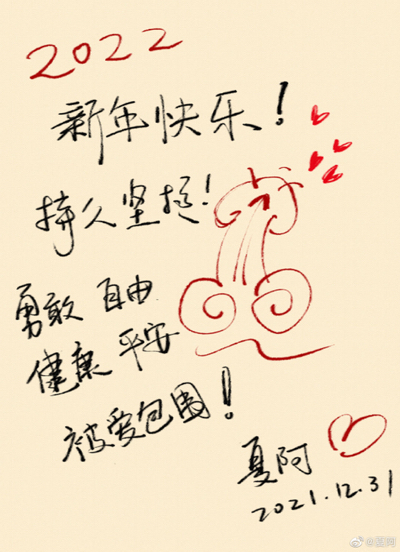 2022
新年快乐！
持久坚挺！
勇敢 自由
健康 平安
被爱包围！
夏阿
2021.12.31